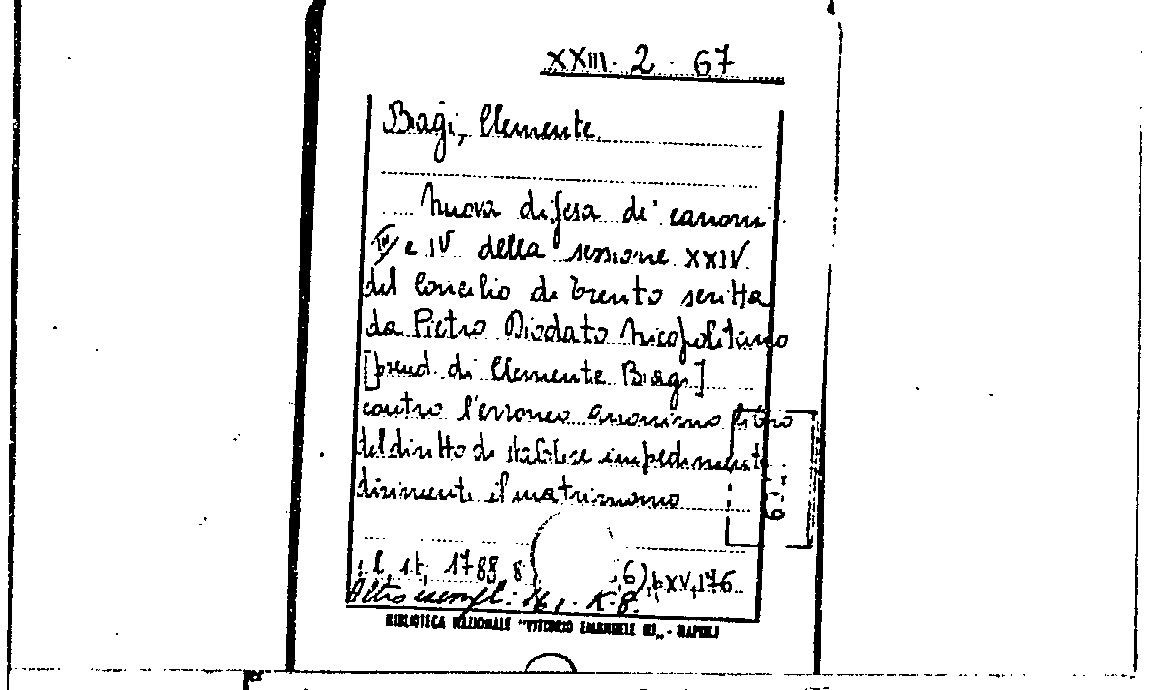 XXIII. 2. 67
Biagi, Clemente
Nuova difesa de' canoni
III e IV della sessione XXIV
del Concilio di Trento scritta
da Pietro Diodato Nicopolitano
[pseud. di Clemente Biagi]
contro l'erroneo anonimo libro
del diritto di stabilire impedimenti
dirimenti il matrimonio
s. l., s. t., 1788, 8 6), p. XV, 176
Altro esempl:
BIBLIOTECA NAZIONALE "VITTORIO EMANUELE III„ - NAPOLI